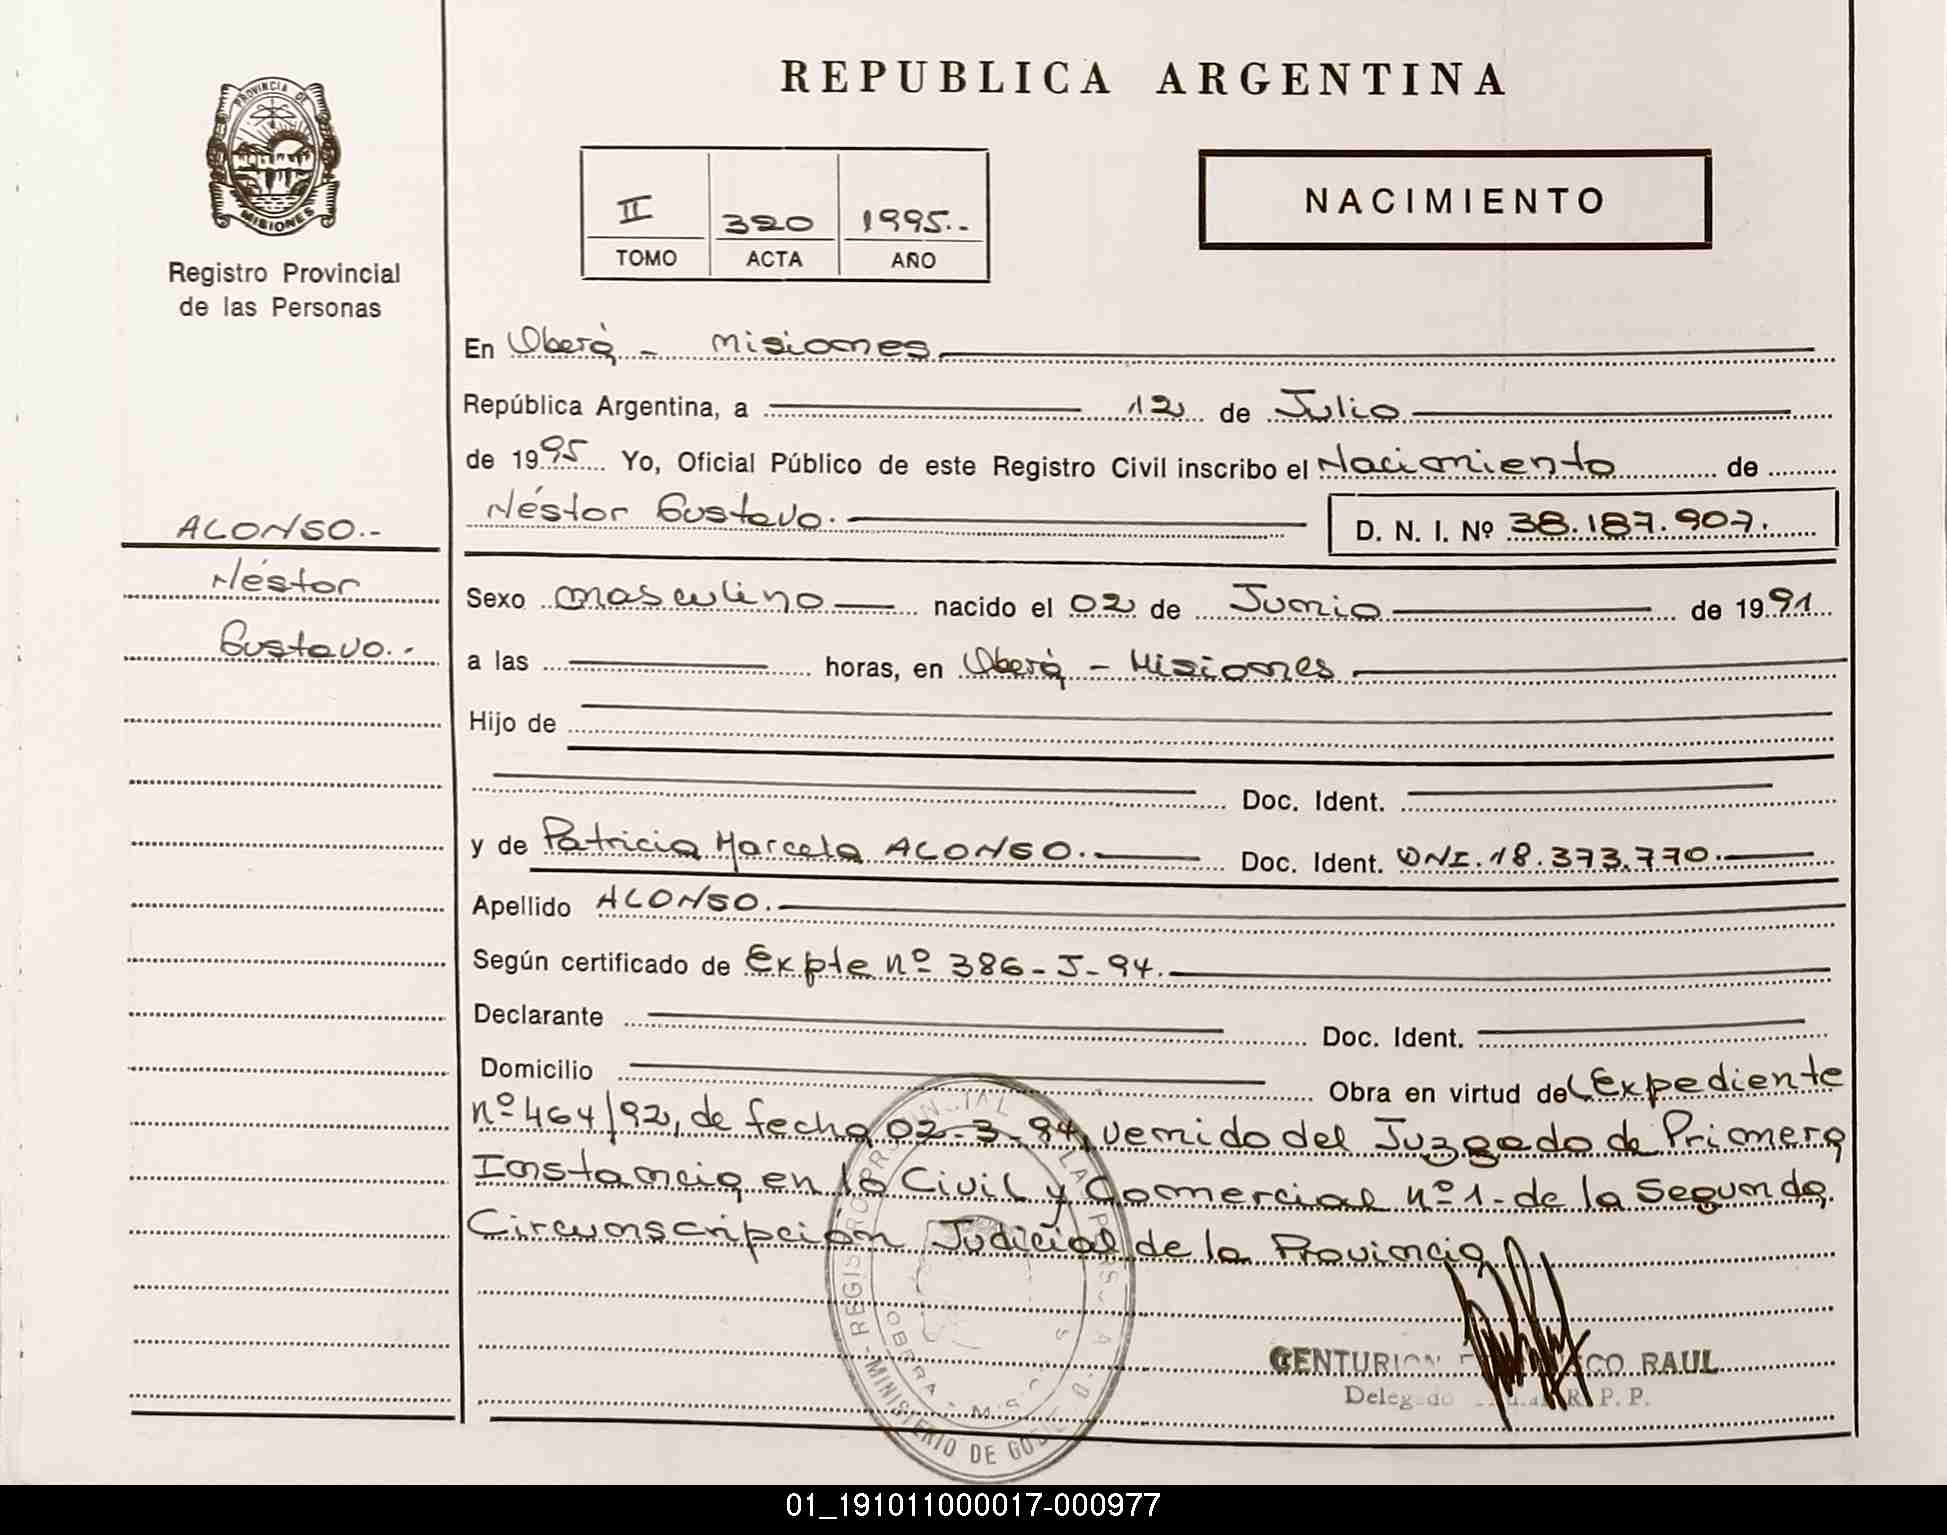 REPUBLICA ARGENTINA
PROVINCIA DE
MISIONES
Registro Provincial
de las Personas
II 320 1995.-
TOMO ACTA AÑO
NACIMIENTO
En Oberá - Misiones
República Argentina, a 12 de Julio
de 1995 Yo, Oficial Público de este Registro Civil inscribo el Nacimiento de
Néstor Gustavo. D. N. I. Nº 38.187.907.
ALONSO.-
Néstor
Gustavo.-
Sexo masculino nacido el 02 de Junio de 1991
a las horas, en Oberá - Misiones
Hijo de
Doc. Ident.
y de Patricia Marcela ALONSO. Doc. Ident. DNI. 18.373.770.
Apellido ALONSO.
Según certificado de Expte nº 386-J-94.
Declarante Doc. Ident.
Domicilio Obra en virtud del Expediente
nº 464/92, de fecha 02-3-94, venido del Juzgado de Primera
Instancia en lo Civil y Comercial nº 1 - de la Segunda
Circunscripción Judicial de la Provincia
CENTURION RAUL
Delegado R. P. P.
MINISTERIO DE
OBERA
01_191011000017-000977